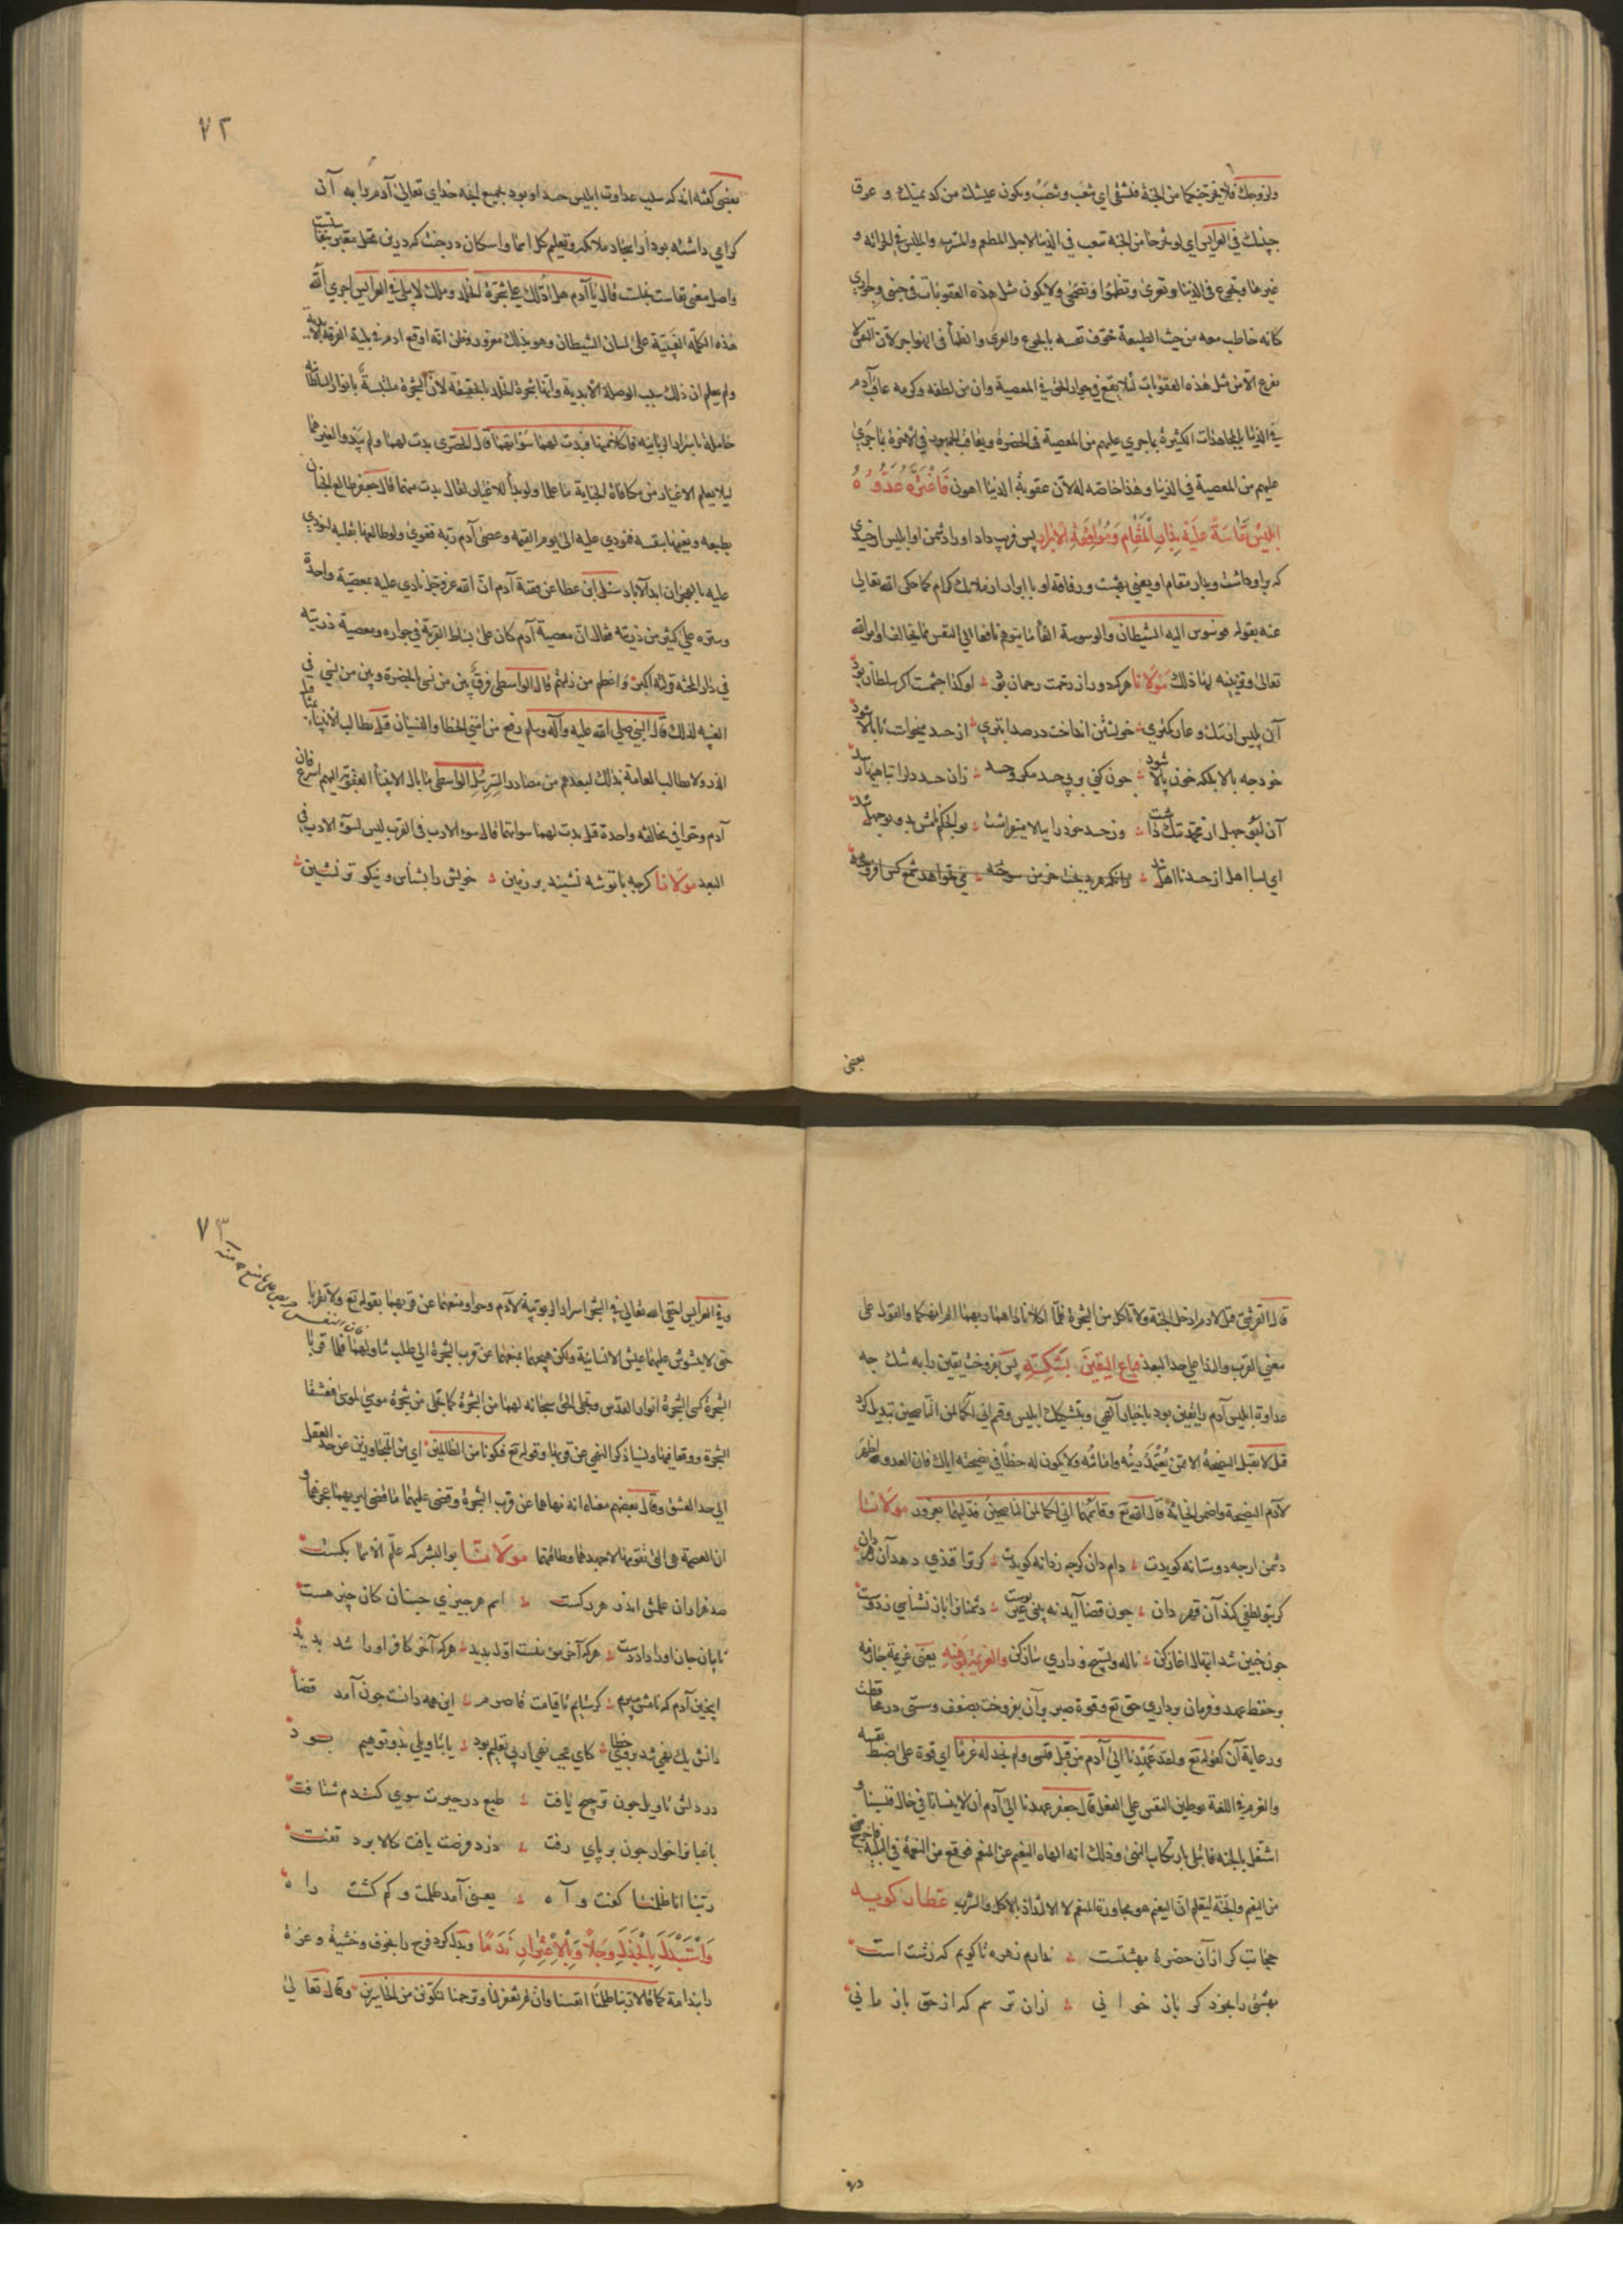 ولزوجك فلا يخرجنكما من الجنة فتشقى اى تتعب وتنصب ويكون عيشك من كد يمينك و عرق
جبينك في العرايس اى لو خرجتما من الجنة تتعب في الدنيا لاجل المطعم والمشرب والملبس
غيرها وتجوع فى الدنيا وتعرى وتظمؤا وتضحى ولا يكون مثل هذه العقوبات
كانه خاطب معه من حيث الطبيعة خوف نفسه بالجوع والعرى والظمأ فى الهواجر لان النفس لا
تفزع الا من مثل هذه العقوبات لئلا يقع في جوار الحق في المعصية وان من لطفه وكرمه عاقب آدم
في الدنيا بالمجاهدات الكثيرة بما جرى عليهم من المعصية فى الحضرة ويعاقب الجمهور في الاخرة بما جرى
عليهم من المعصية في الدنيا وهذا خاصة له لان عقوبة الدنيا اهون فَاغْتَرَّهُ عَدُوُّهُ
اِبْلِيسُ نَفَاسَةً عَلَيْهِ بِدَارِ الْمُقَامِ وَمُرَافَقَةِ الْاَبْرَارِ پس فريب داد اورا دشمن او ابليس از حسدى
كه بر او داشت و بدار مقام او يعنى بهشت و رفاقة او با ابرار از ملايك كرام كما حكى الله تعالى
عنه بقوله فوسوس اليه الشيطان والوسوسة القا ما يتوهم نافعا الى النفس مما يخالف اوامر الله
تعالى و تزيينه لها ذلك مَوْلَانَا هركه دور از رحمت رحمان بود او كدا چشمت اكر سلطان بود
آن بليس از ننك و عار كمترى خويشتن انداخت در صد ابترى از حسد ميخواست تا بالا شود
خود چه بالا بلكه خون پالا شود چون كنى بر بى حسد مكر و حسد زان حسد دلرا سياهيها رسد
آن ابو جهل از محمد ننك داشت وز حسد خود را ببالا ميفراشت بو الحكم نامش بد و بو جهل شد
اى بسا اهل از حسد نا اهل شد زانكه هر بدبخت خرمن سوخته مى نخواهد شمع كس افروخته
يعنى
٧٢
بعضى كفته اند كه سبب عداوت ابليس حسد او بود بجميع انچه خداى تعالى آدم را به آن
كرامى داشته بود از ايجاد ملائكه و تعليم كل اسما و اسكان در جنت كه
واصل معنى نفاست بخلست قال يا آدم هل ادلك على شجرة الخلد وملك لا يبلى في العرايس اجرى الله
هذه الكلمة الغيبية على لسان الشيطان وهو بذلك مغرور وظن انه اوقع ادم في بلية الفرقة
ولم يعلم ان ذلك سبب الوصلة الابدية وانها شجرة الخلد بالحقيقة لان الشجرة ملتبسة بانوار السلطانية
حاملة باسرار الربانية فاكلا منها فبدت لهما سوآتهما قال الحصرى بدت لهما ولم يبدوا لغيرهما
ليلا يعلم الاغيار من مكافاة الجناية ما علما ولو بدأ للاغيار لقال بدت منهما قال جعفر طالع الجنان
بطبعه ونعيمها بنفسه فنودى عليه الى يوم القيمة وعصى آدم ربه فغوى ولو طالعها بقلبه لنودى
عليه بالهجران ابد الآباد سئل ابن عطا عن قصة آدم ان الله عز وجل نادى عليه بمعصية واحدة
وستره على كثير من ذريته فقال ان معصية آدم كان على بساط القربة في جواره ومعصية ذريته
في دار المحنة فزلته اكبر واعظم من زلتهم قال الواسطى فرق بين من نسى الحضرة وبين من نسى في
الغيبة لذلك قال النبي صلى الله عليه وآله وسلم رفع عن امتى الخطا والنسيان قيل يطالب الانبياء بمثاقيل
الذر ولا يطالب العامة بذلك لبعدهم من مصادر السر سئل الواسطى ما بال الانبيأ العقوبة اليهم اسرع فان
آدم وحوا في مخالفه واحدة قيل بدت لهما سوآتهما قال سوء الادب فى القرب ليس كسوء الادب في
البعد مَوْلَانَا كرچه با تو شه نشيند بر زمين خويش را بشناس و نيكو تر نشين
قال القرشى قيل لآدم ادخل الجنة ولا تاكل من الشجرة فلما اكلا ناداهما ربهما الم انهكما والقول على
معنى القرب والندا على حد البعد فَبَاعَ الْيَقِينَ بِشَكِّهِ پس بفروخت يقين را به شك چه
عداوة ابليس آدم را يقين بود باخبار آلهى و بتشكيك ابليس و قسم انى لكما لمن الناصحين تبديل كرد
قيل لا تقبل النصيحة الا ممن يُعْتَمَدُ دينُه وامانتُه ولا يكون له حظا في نصيحته اياك فان العدو اظهر
لآدم النصيحة واضمر الخيانة قال الله تع وقاسمهما انى لكما لمن الناصحين فدليهما بغرور مَوْلَانَا
دشمن ارچه دوستانه كويدت دام دان كرچه ز دانه كويدت كر ترا قندى دهد آن زهر دان
كر بتو لطفى كند آن قهر دان چون قضا آيد نه بينى غير پوست دشمنانرا باز نشناسى ز دوست
چون چنين شد ابتهال آغاز كن ناله و تسبيح و زارى ساز كن والعزيمة بوهنه يعنى عزيمة جازمه
بر حفظ عهد و فرمان بردارى حق تع و قوة صبر بر آن بفروخت بضعف و سستى در محافظت
و رعاية آن كقوله تع ولقد عهدنا الى آدم من قبل فنسى ولم نجد له عزما اى قوة على ضبط نفسه
والعزم في اللغة توطين النفس على الفعل قال جعفر عهدنا الى آدم ان لا ينسانا في حال فنسينا و
اشتغل بالجنه فابتلى بارتكاب النهى وذلك انه الهاه النعيم عن المنعم فوقع من النعمة في البلية فاخرج
من النعيم والجنة ليعلم ان النعيم هو مجاورة المنعم لا الالتذاذ بالاكل والشرب عطار كويد
حجابت كر ازآن حضرة بهشتست ندارم زهره تا كويم كه زشت است
بهشتى را بخود كر باز خوانى ازان ترسم كه از حق باز مانى
وفي
٧٣
وفي العرايس اخفى الله تعالى في الشجرة اسرار الربوبية لآدم وحوا ومنعهما عن قربهما بقوله تع ولا تقربا
حتى لا يشوش عليهما عيش الانسانية ولكن هيجهما بمنعهما عن قرب الشجرة الى طلب تناولهما فلما قربا
الشجرة كسى الشجرة انوار القدس وتجلى الحق سبحانه لهما من الشجرة كما تجلى من شجرة موسى لموسى فعشقا
الشجرة ووقعا فيها ونسيا ذكر النهى عن قربها وقوله تع فتكونا من الظالمين اى من المتجاوزين عن حد العقل
الى حد العشق وقال بعضهم معناه انه نهاهما عن قرب الشجرة وقضى عليهما ما قضى ليريهما عجزهما و
ان العصمة هى التى تقومهما لا جهدهما وطاقتهما مَوْلَانَا بو البشر كه علم الاسما بكست
صد هزاران علمش اندر هر ركست اسم هر چيزى چنان كان چيز هست
تا بپايان جان اورا داد دست هركه آخر مؤمنست اول بديد هركه آخر كافر اورا شد پديد
اينچنين آدم كه نامش ميبرم كر ستايم تا قيامت قاصرم اين همه دانست چون آمد قضا
دانش يك نهى شد بروى خطا كاى عجب نهى از پى تحريم بود يا بتاويلى بد و توهيم بود
در دلش تاويل چون ترجيح يافت طبع در حيرت سوى كندم شتافت
باغبانرا خار چون بر پاى رفت دزد فرصت يافت كالا برد تفت
ربنا انا ظلمنا كفت و آه يعنى آمد ظلمت و كم كشت راه
وَاسْتَبْدَلَ بِالْجَذَلِ وَجَلًا وَبِالْاِغْتِرَارِ نَدَمًا و بدل كرد فرح را بخوف و خشية و عزة
را بندامة كما قالا ربنا ظلمنا انفسنا وان لم تغفر لنا وترحمنا لنكونن من الخاسرين وقال تعالى